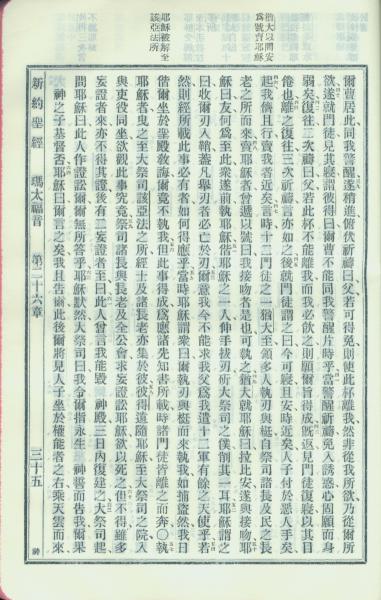 猶大以問安
為號賣耶穌
耶穌被解至
該亞法所
爾曹居此同我警醒遂稍進俯伏祈禱曰父若可得免則使此杯離我然非從我所欲乃從爾所
欲遂就門徒見其寢謂彼得曰爾曹不能同我警醒片時乎當警醒祈禱免入誘惑心固願而身
弱矣復往二次禱曰父若此杯不能離我而我必飲之則願爾旨得成既返見門徒復寢以其目
倦也離之復往三次祈禱言亦如之後就門徒謂之曰今可寢且安時近矣人子付於惡人手矣
起我儕且行賣我者近矣言時十二門徒之一猶大至領多人執刃與梃自祭司諸長及民之長
老之所而來賣耶穌者曾遞以號曰我接吻者是也可執之猶大就耶穌曰拉比安遂與接吻耶
穌曰友何爲至此衆遂前執耶穌偕耶穌之一人伸手拔刃斫大祭司之僕削其一耳耶穌謂之
曰收爾刃入鞘蓋凡舉刃者必亡於刃爾意我今不能求我父爲我遣十二軍有餘之天使乎若
然則經所載此事必有者如何得應乎當時耶穌謂衆曰爾執刃與梃而來執我如捕盜然我日
偕爾坐於聖殿敎誨爾竟不執我但此事得成爲應諸先知書所載時諸門徒皆離之而奔○執
耶穌者曳之至大祭司該亞法之所經士及諸長老亦集於彼彼得遠隨耶穌至大祭司之院入
與吏役同坐欲觀此事究竟祭司諸長與長老及全公會求妄證訟耶穌欲以死之但不得雖多
妄證者來亦不得其證後有二妄證者至曰此人曾言我能毀 神殿三日內復建之大祭司起
問耶穌曰此人作證訟爾爾無所答乎耶穌默然大祭司曰我令爾指永生 神誓而告我爾果
神之子基督否耶穌曰爾言之矣我且告爾此後爾將見人子坐於權能者之右乘天雲而來
新約聖經 瑪太福音 第二十六章 三十五